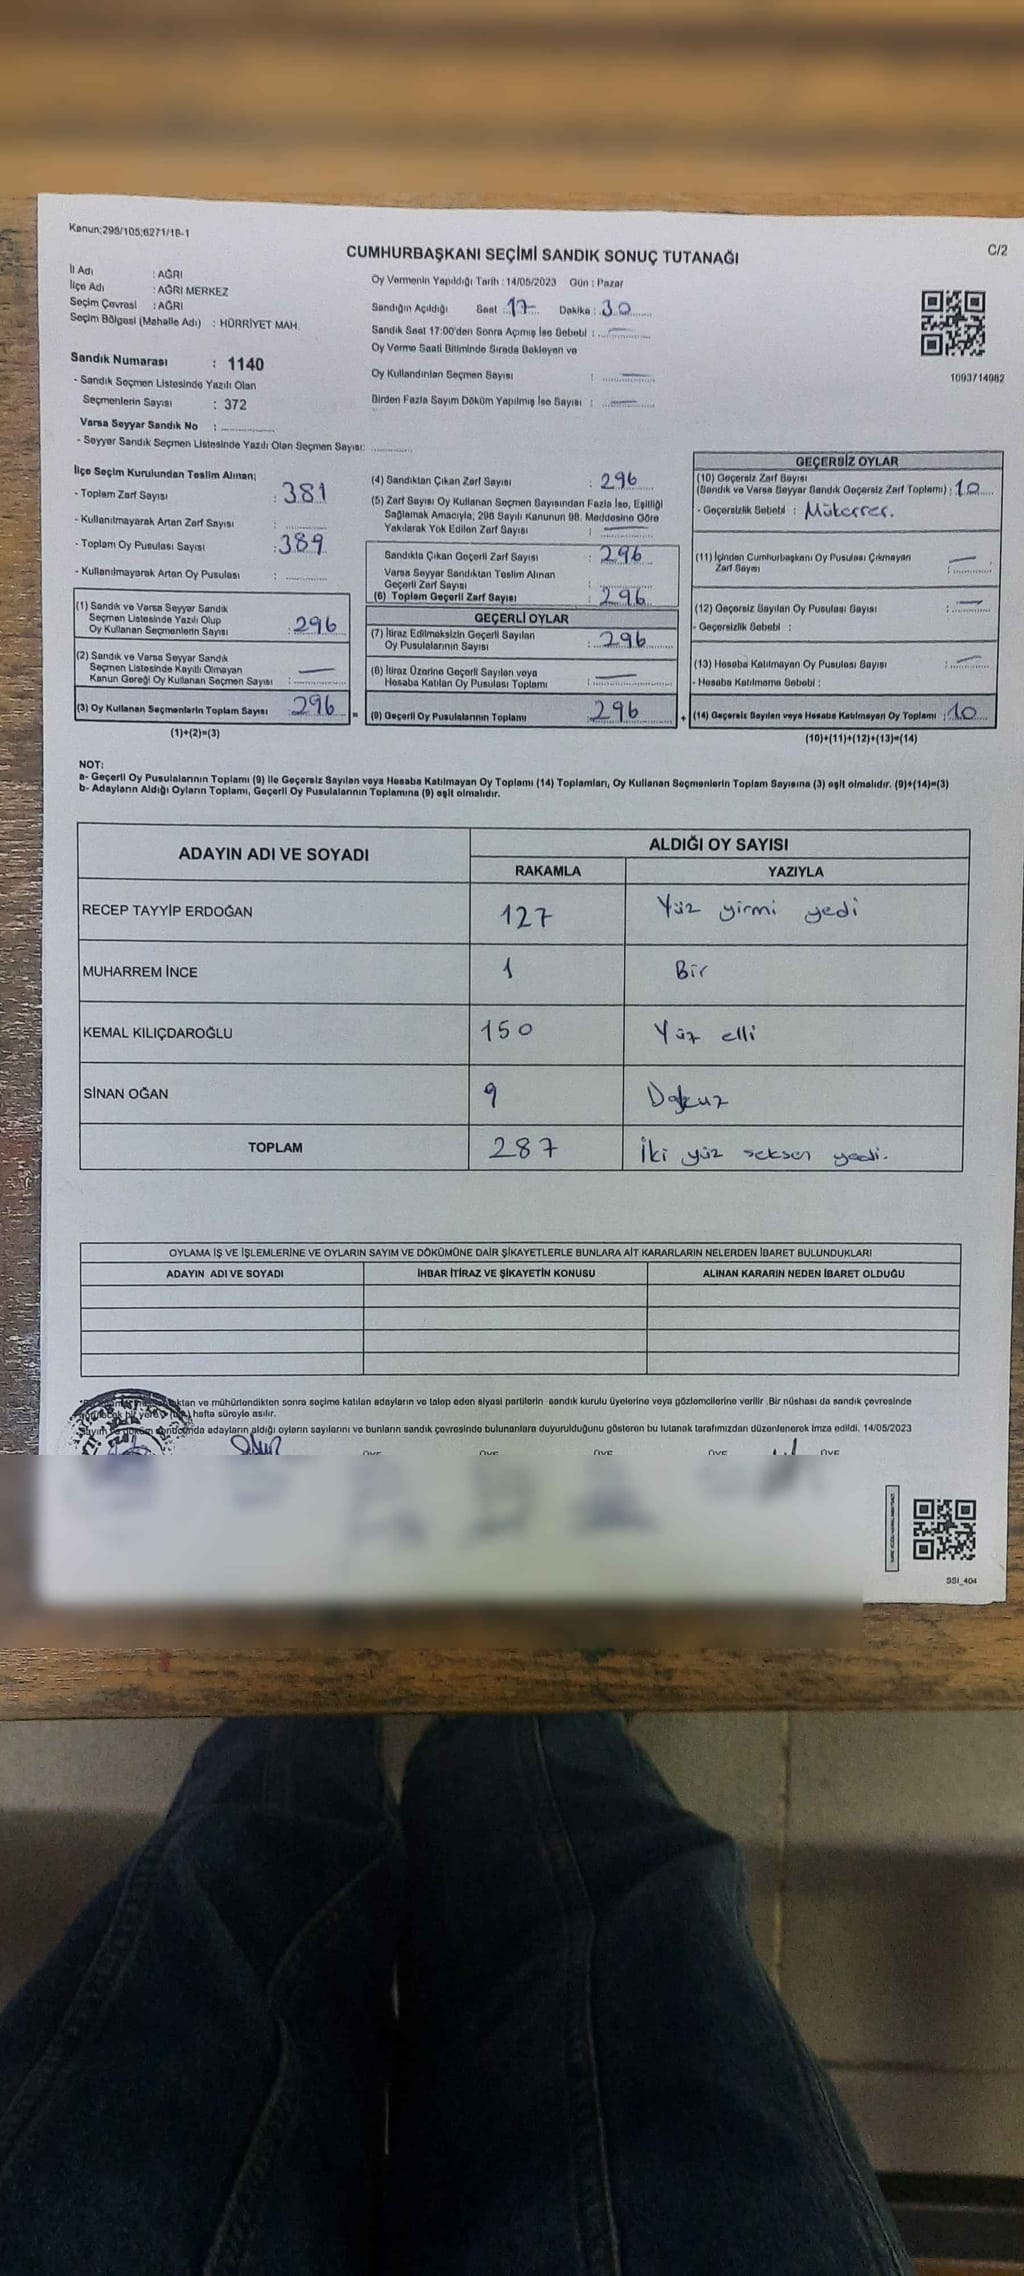 Kanun:298/105;6271/16-1
CUMHURBAŞKANI SEÇİMİ SANDIK SONUÇ TUTANAĞI
C/2
İl Adı : AĞRI
İlçe Adı : AĞRI MERKEZ
Seçim Çevresi : AĞRI
Seçim Bölgesi (Mahalle Adı) : HÜRRİYET MAH.
Oy Vermenin Yapıldığı Tarih : 14/05/2023 Gün : Pazar
Sandığın Açıldığı Saat : 17 Dakika : 30
Sandık Saat 17:00'den Sonra Açımış İse Sebebi : —
Oy Verme Saati Bitiminde Sırada Bekleyen ve
Oy Kullandırılan Seçmen Sayısı : —
Birden Fazla Sayım Döküm Yapılmış İse Sayısı : —
1093714982
Sandık Numarası : 1140
- Sandık Seçmen Listesinde Yazılı Olan
Seçmenlerin Sayısı : 372
Varsa Seyyar Sandık No :
- Seyyar Sandık Seçmen Listesinde Yazılı Olan Seçmen Sayısı:
İlçe Seçim Kurulundan Teslim Alınan;
- Toplam Zarf Sayısı : 381
- Kullanılmayarak Artan Zarf Sayısı :
- Toplam Oy Pusulası Sayısı : 389
- Kullanılmayarak Artan Oy Pusulası :
(1) Sandık ve Varsa Seyyar Sandık
Seçmen Listesinde Yazılı Olup
Oy Kullanan Seçmenlerin Sayısı : 296
(2) Sandık ve Varsa Seyyar Sandık
Seçmen Listesinde Kayıtlı Olmayan
Kanun Gereği Oy Kullanan Seçmen Sayısı : —
(3) Oy Kullanan Seçmenlerin Toplam Sayısı : 296 =
(1)+(2)=(3)
(4) Sandıktan Çıkan Zarf Sayısı : 296
(5) Zarf Sayısı Oy Kullanan Seçmen Sayısından Fazla İse, Eşitliği
Sağlamak Amacıyla; 298 Sayılı Kanunun 98. Maddesine Göre
Yakılarak Yok Edilen Zarf Sayısı : —
Sandıkta Çıkan Geçerli Zarf Sayısı : 296
Varsa Seyyar Sandıktan Teslim Alınan
Geçerli Zarf Sayısı :
(6) Toplam Geçerli Zarf Sayısı : 296
GEÇERLİ OYLAR
(7) İtiraz Edilmeksizin Geçerli Sayılan
Oy Pusulalarının Sayısı : 296
(8) İtiraz Üzerine Geçerli Sayılan veya
Hesaba Katılan Oy Pusulası Toplamı : —
(9) Geçerli Oy Pusulalarının Toplamı : 296 +
GEÇERSİZ OYLAR
(10) Geçersiz Zarf Sayısı
(Sandık ve Varsa Seyyar Sandık Geçersiz Zarf Toplamı) : 10
- Geçersizlik Sebebi : Mükerrer.
(11) İçinden Cumhurbaşkanı Oy Pusulası Çıkmayan
Zarf Sayısı : —
(12) Geçersiz Sayılan Oy Pusulası Sayısı : —
- Geçersizlik Sebebi :
(13) Hesaba Katılmayan Oy Pusulası Sayısı : —
- Hesaba Katılmama Sebebi :
(14) Geçersiz Sayılan veya Hesaba Katılmayan Oy Toplamı : 10
(10)+(11)+(12)+(13)=(14)
NOT:
a- Geçerli Oy Pusulalarının Toplamı (9) ile Geçersiz Sayılan veya Hesaba Katılmayan Oy Toplamı (14) Toplamları, Oy Kullanan Seçmenlerin Toplam Sayısına (3) eşit olmalıdır. (9)+(14)=(3)
b- Adayların Aldığı Oyların Toplamı, Geçerli Oy Pusulalarının Toplamına (9) eşit olmalıdır.
ADAYIN ADI VE SOYADI
ALDIĞI OY SAYISI
RAKAMLA YAZIYLA
RECEP TAYYİP ERDOĞAN 127 Yüz yirmi yedi
MUHARREM İNCE 1 Bir
KEMAL KILIÇDAROĞLU 150 Yüz elli
SİNAN OĞAN 9 Dokuz
TOPLAM 287 İki yüz seksen yedi.
OYLAMA İŞ VE İŞLEMLERİNE VE OYLARIN SAYIM VE DÖKÜMÜNE DAİR ŞİKAYETLERLE BUNLARA AİT KARARLARIN NELERDEN İBARET BULUNDUKLARI
ADAYIN ADI VE SOYADI İHBAR İTİRAZ VE ŞİKAYETİN KONUSU ALINAN KARARIN NEDEN İBARET OLDUĞU
ve mühürlendikten sonra seçime katılan adayların ve talep eden siyasi partilerin sandık kurulu üyelerine veya gözlemcilerine verilir. Bir nüshası da sandık çevresinde
hafta süreyle asılır.
adayların aldığı oyların sayılarını ve bunların sandık çevresinde bulunanlara duyurulduğunu gösteren bu tutanak tarafımızdan düzenlenerek imza edildi. 14/05/2023
SSI_404